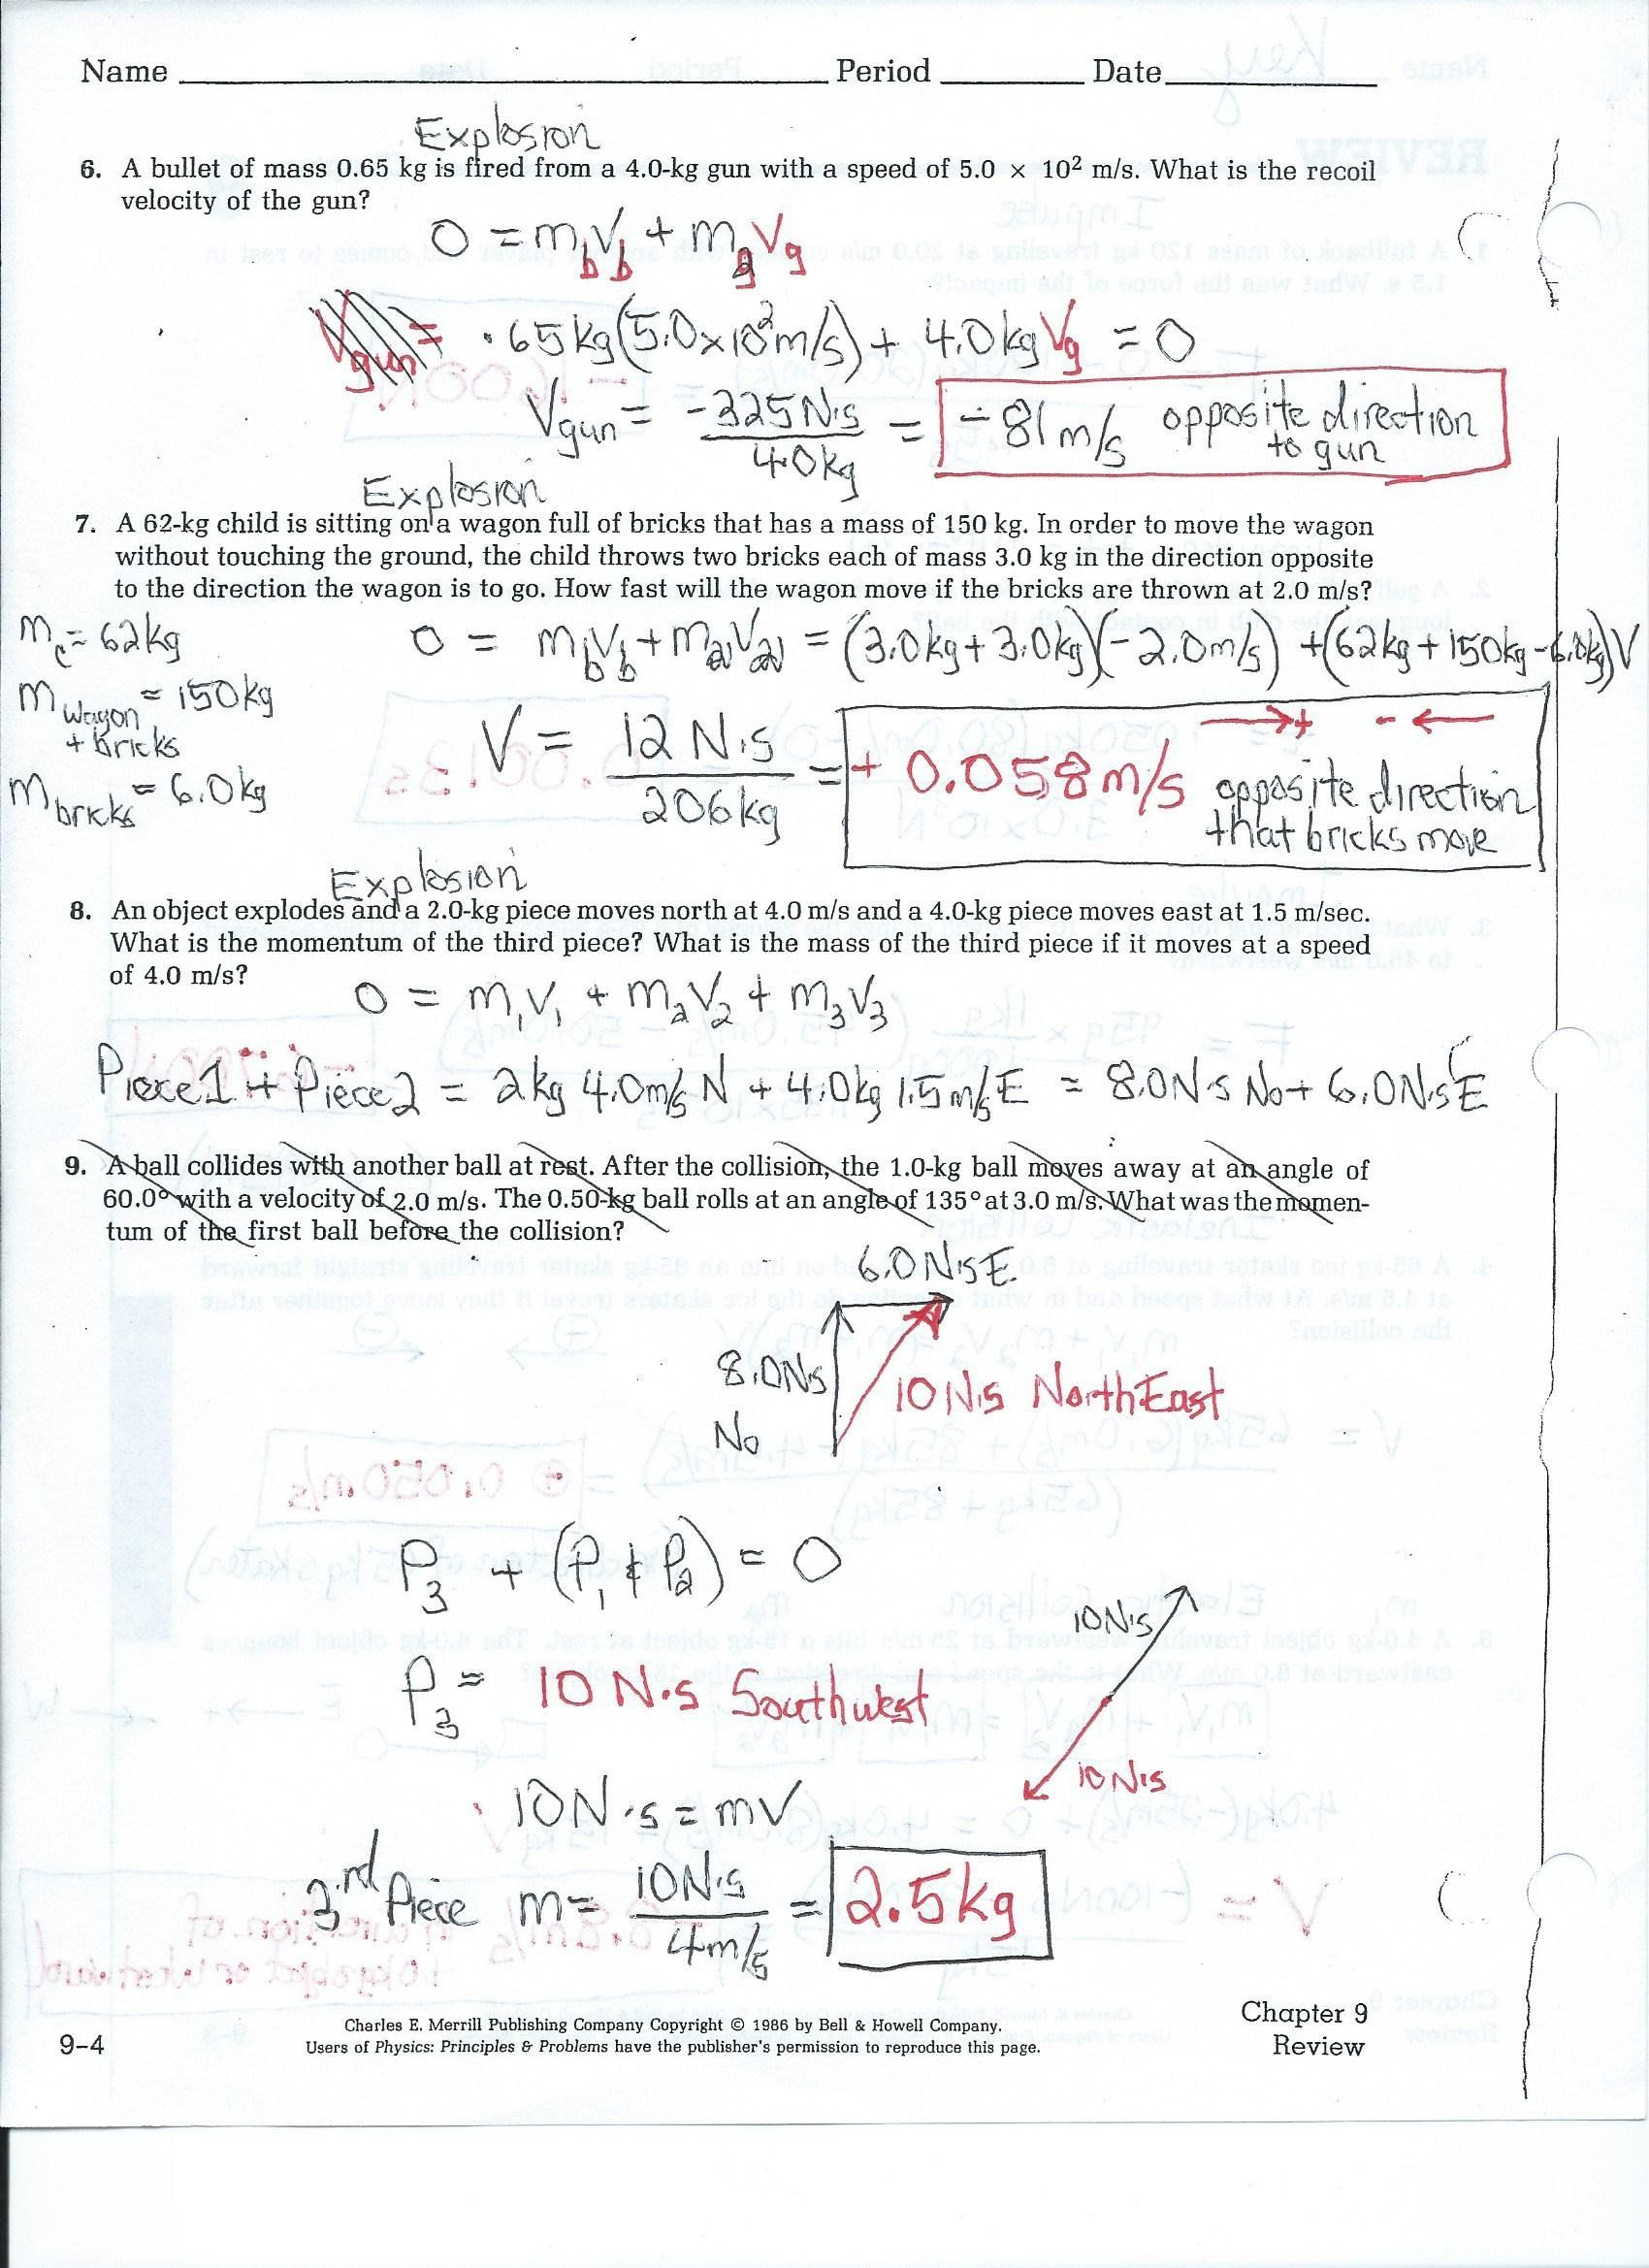 Name Period Date
Explosion
6. A bullet of mass 0.65 kg is fired from a 4.0-kg gun with a speed of 5.0 × 10² m/s. What is the recoil
velocity of the gun?
0 = m_b v_b + m_g v_g
.65 kg (5.0 x 10² m/s) + 4.0 kg Vg = 0
Vgun = -325 N·s / 4.0 kg = -81 m/s opposite direction
to gun
Explosion
7. A 62-kg child is sitting on a wagon full of bricks that has a mass of 150 kg. In order to move the wagon
without touching the ground, the child throws two bricks each of mass 3.0 kg in the direction opposite
to the direction the wagon is to go. How fast will the wagon move if the bricks are thrown at 2.0 m/s?
m_c = 62 kg
0 = m_b v_b + = (3.0 kg + 3.0 kg)(-2.0 m/s) + (62 kg + 150 kg - 6.0 kg) V
m wagon + bricks = 150 kg
m bricks = 6.0 kg
V = 12 N·s / 206 kg = + 0.058 m/s opposite direction
that bricks move
→ + - ←
Explosion
8. An object explodes and a 2.0-kg piece moves north at 4.0 m/s and a 4.0-kg piece moves east at 1.5 m/sec.
What is the momentum of the third piece? What is the mass of the third piece if it moves at a speed
of 4.0 m/s?
0 = m₁v₁ + m₂v₂ + m₃v₃
Piece 1 + Piece 2 = 2 kg 4.0 m/s N + 4.0 kg 1.5 m/s E = 8.0 N·s No + 6.0 N·s E
9. A ball collides with another ball at rest. After the collision, the 1.0-kg ball moves away at an angle of
60.0° with a velocity of 2.0 m/s. The 0.50-kg ball rolls at an angle of 135° at 3.0 m/s. What was the momen-
tum of the first ball before the collision?
6.0 N·s E
8.0 N·s
No
10 N·s North East
P₃ + (P₁ + P₂) = 0
10 N·s
P₃ = 10 N·s Southwest
10 N·s
10 N·s = mV
3rd Piece m = 10 N·s / 4 m/s = 2.5 kg
9-4
Charles E. Merrill Publishing Company Copyright © 1986 by Bell & Howell Company.
Users of Physics: Principles & Problems have the publisher's permission to reproduce this page.
Chapter 9
Review